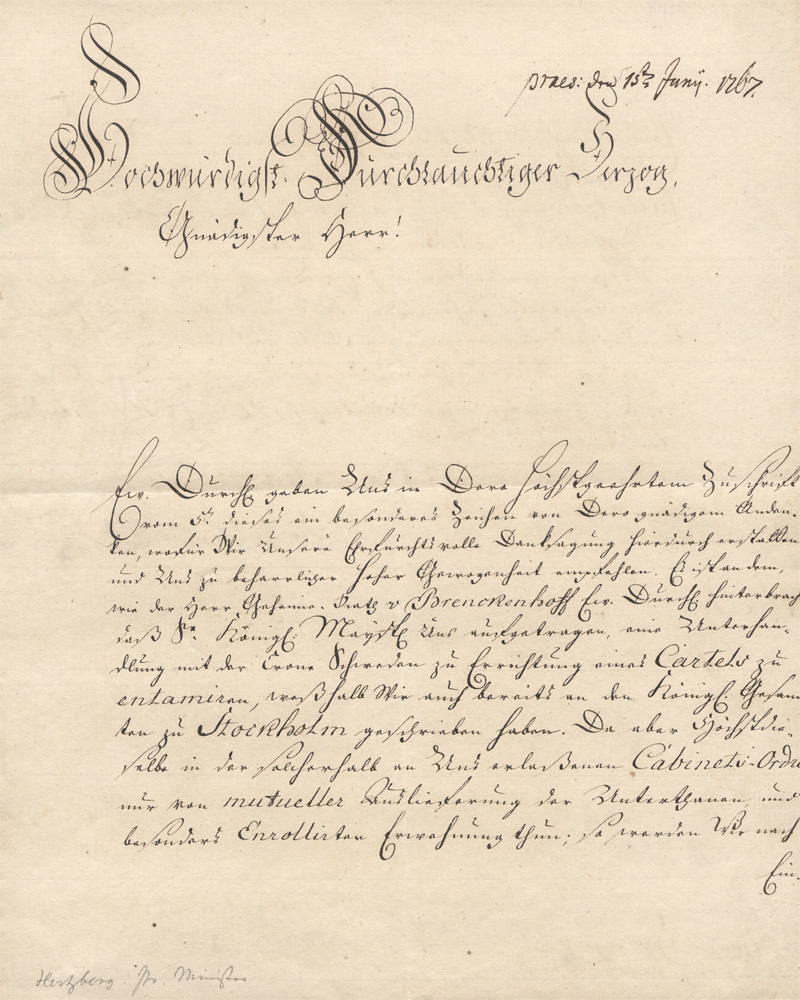 praes: den 15ten Junij. 1767.
Hochwürdigst. Durchlauchtiger Herzog,
Gnädigster Herr!
Ew. Durchl. geben Uns in Dero höchstgeehrtem Zuschrift
vom 5t. dieses ein besonderes Zeichen von Dero gnädigem Anden-
ken, wofür Wir Unsere Ehrfurchtsvolle Danksagung hiedurch erstatten
und Uns zu beharrlicher hoher Gewogenheit empfehlen. Es ist an dem,
wie der Herr Geheime Rath v Brenckenhoff Ew. Durchl. hinterbrach
daß Se. Königl. Mayst. Uns aufgetragen, eine Unterhan-
dlung mit der Crone Schweden zu Errichtung eines Cartels zu
entamiren, weßhalb Wir auch bereits an den Königl. Gesan
ten zu Stockholm geschrieben haben. Da aber Höchstdie-
selbe in der solcherhalb an Uns erlaßenen Cabinets-Ordre
nur von mutueller Auslieferung der Unterthanen und
besonders Enrollirten Erwehnung thun; so werden Wir nach
Ein-
Hertzberg Pr. Minister